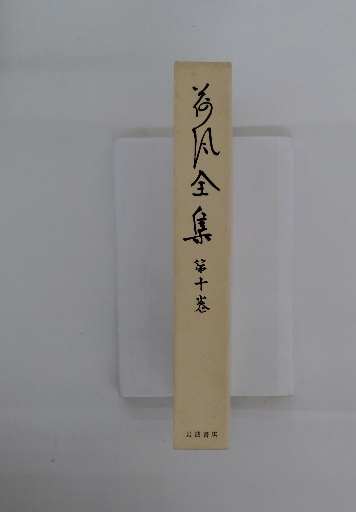 荷風全集
第十卷
岩波書店